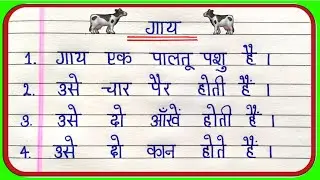 गाय
1. गाय एक पालतू पशु है ।
2. उसे चार पैर होती हैं ।
3. उसे दो आँखें होती हैं ।
4. उसे दो कान होते हैं ।